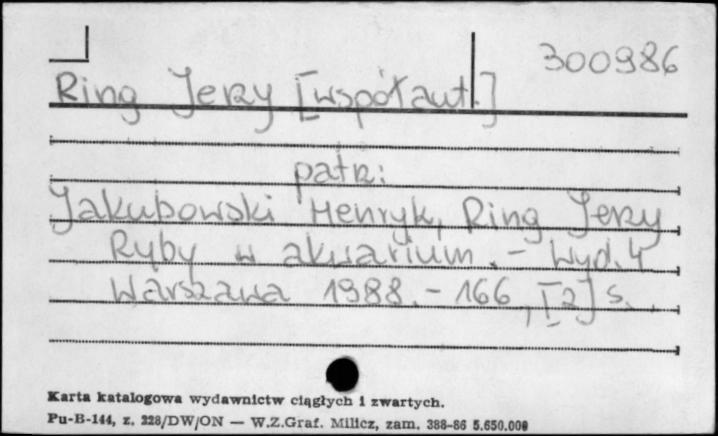 300986
Ring Jerzy [współaut.]
patrz:
Jakubowski Henryk, Ring Jerzy
Ryby w akwarium. - Wyd. 4
Warszawa 1988. - 166, [2] s.
Karta katalogowa wydawnictw ciągłych i zwartych.
Pu-B-144, z. 228/DW/ON — W.Z.Graf. Milicz, zam. 388-86 5.650.000